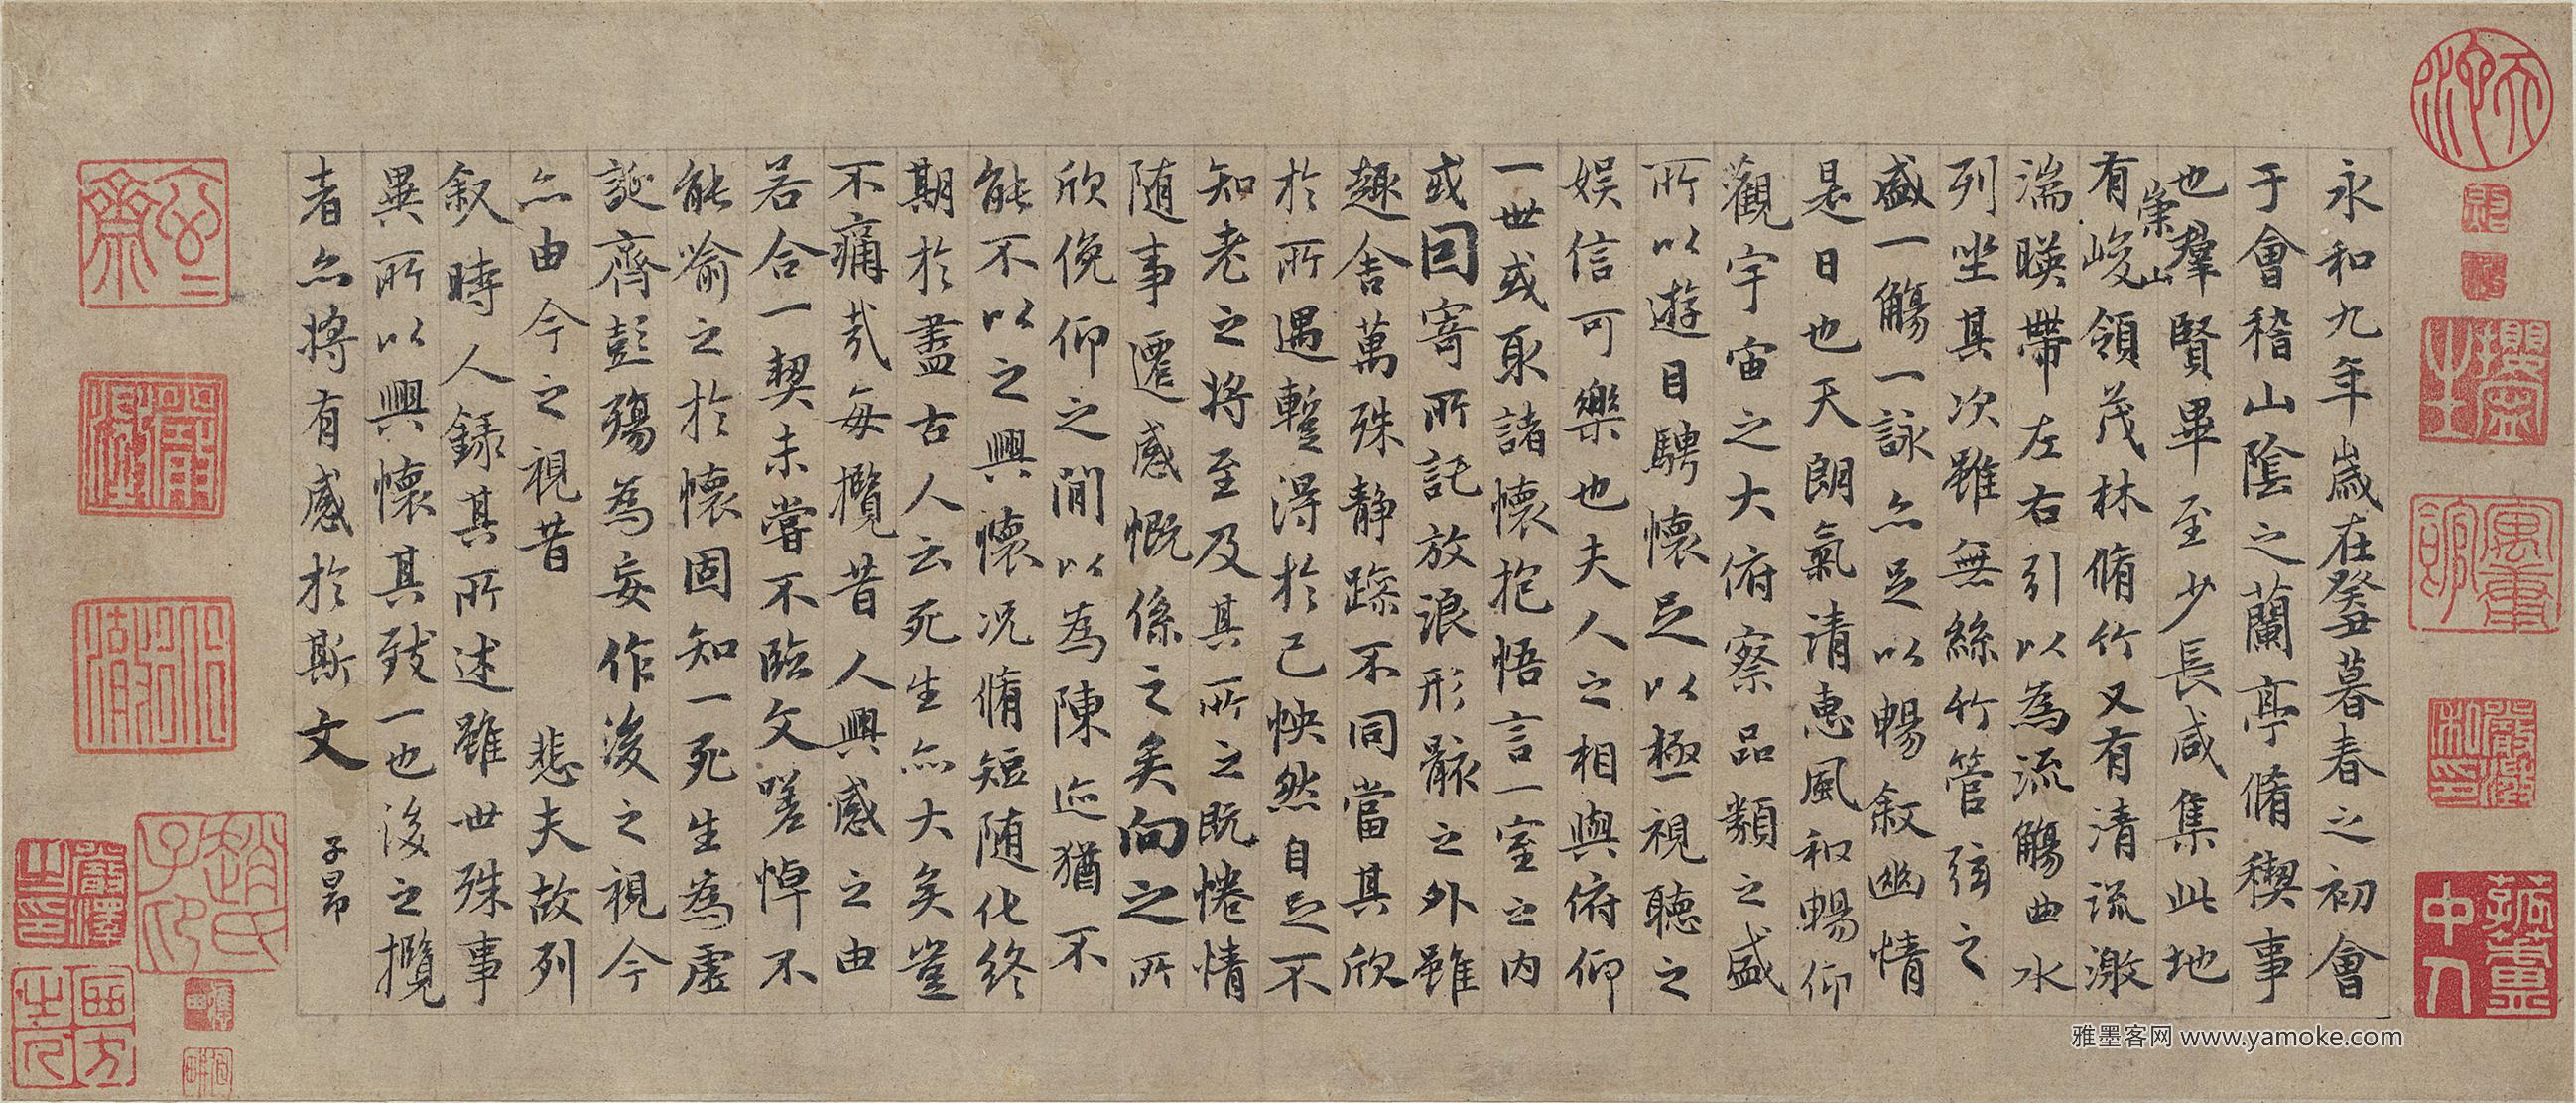 永和九年歲在癸丑暮春之初會
于會稽山陰之蘭亭脩稧事
也羣賢畢至少長咸集此地
崇山
有峻領茂林脩竹又有清流激
湍暎帶左右引以為流觴曲水
列坐其次雖無絲竹管弦之
盛一觴一詠亦足以暢叙幽情
是日也天朗氣清惠風和暢仰
觀宇宙之大俯察品類之盛
所以遊目騁懷足以極視聽之
娛信可樂也夫人之相與俯仰
一世或取諸懷抱悟言一室之內
或因寄所託放浪形骸之外雖
趣舍萬殊静躁不同當其欣
於所遇蹔得於己怏然自足不
知老之將至及其所之既惓情
随事遷感慨係之矣向之所
欣俛仰之閒以為陳迹猶不
能不以之興懷况脩短随化終
期於盡古人云死生亦大矣豈
不痛哉每攬昔人興感之由
若合一契未嘗不臨文嗟悼不
能喻之於懷固知一死生為虛
誕齊彭殤為妄作後之視今
亦由今之視昔 悲夫故列
叙時人録其所述雖世殊事
異所以興懷其致一也後之攬
者亦將有感於斯文
子昂
趙氏子昂
雅墨客网 www.yamoke.com